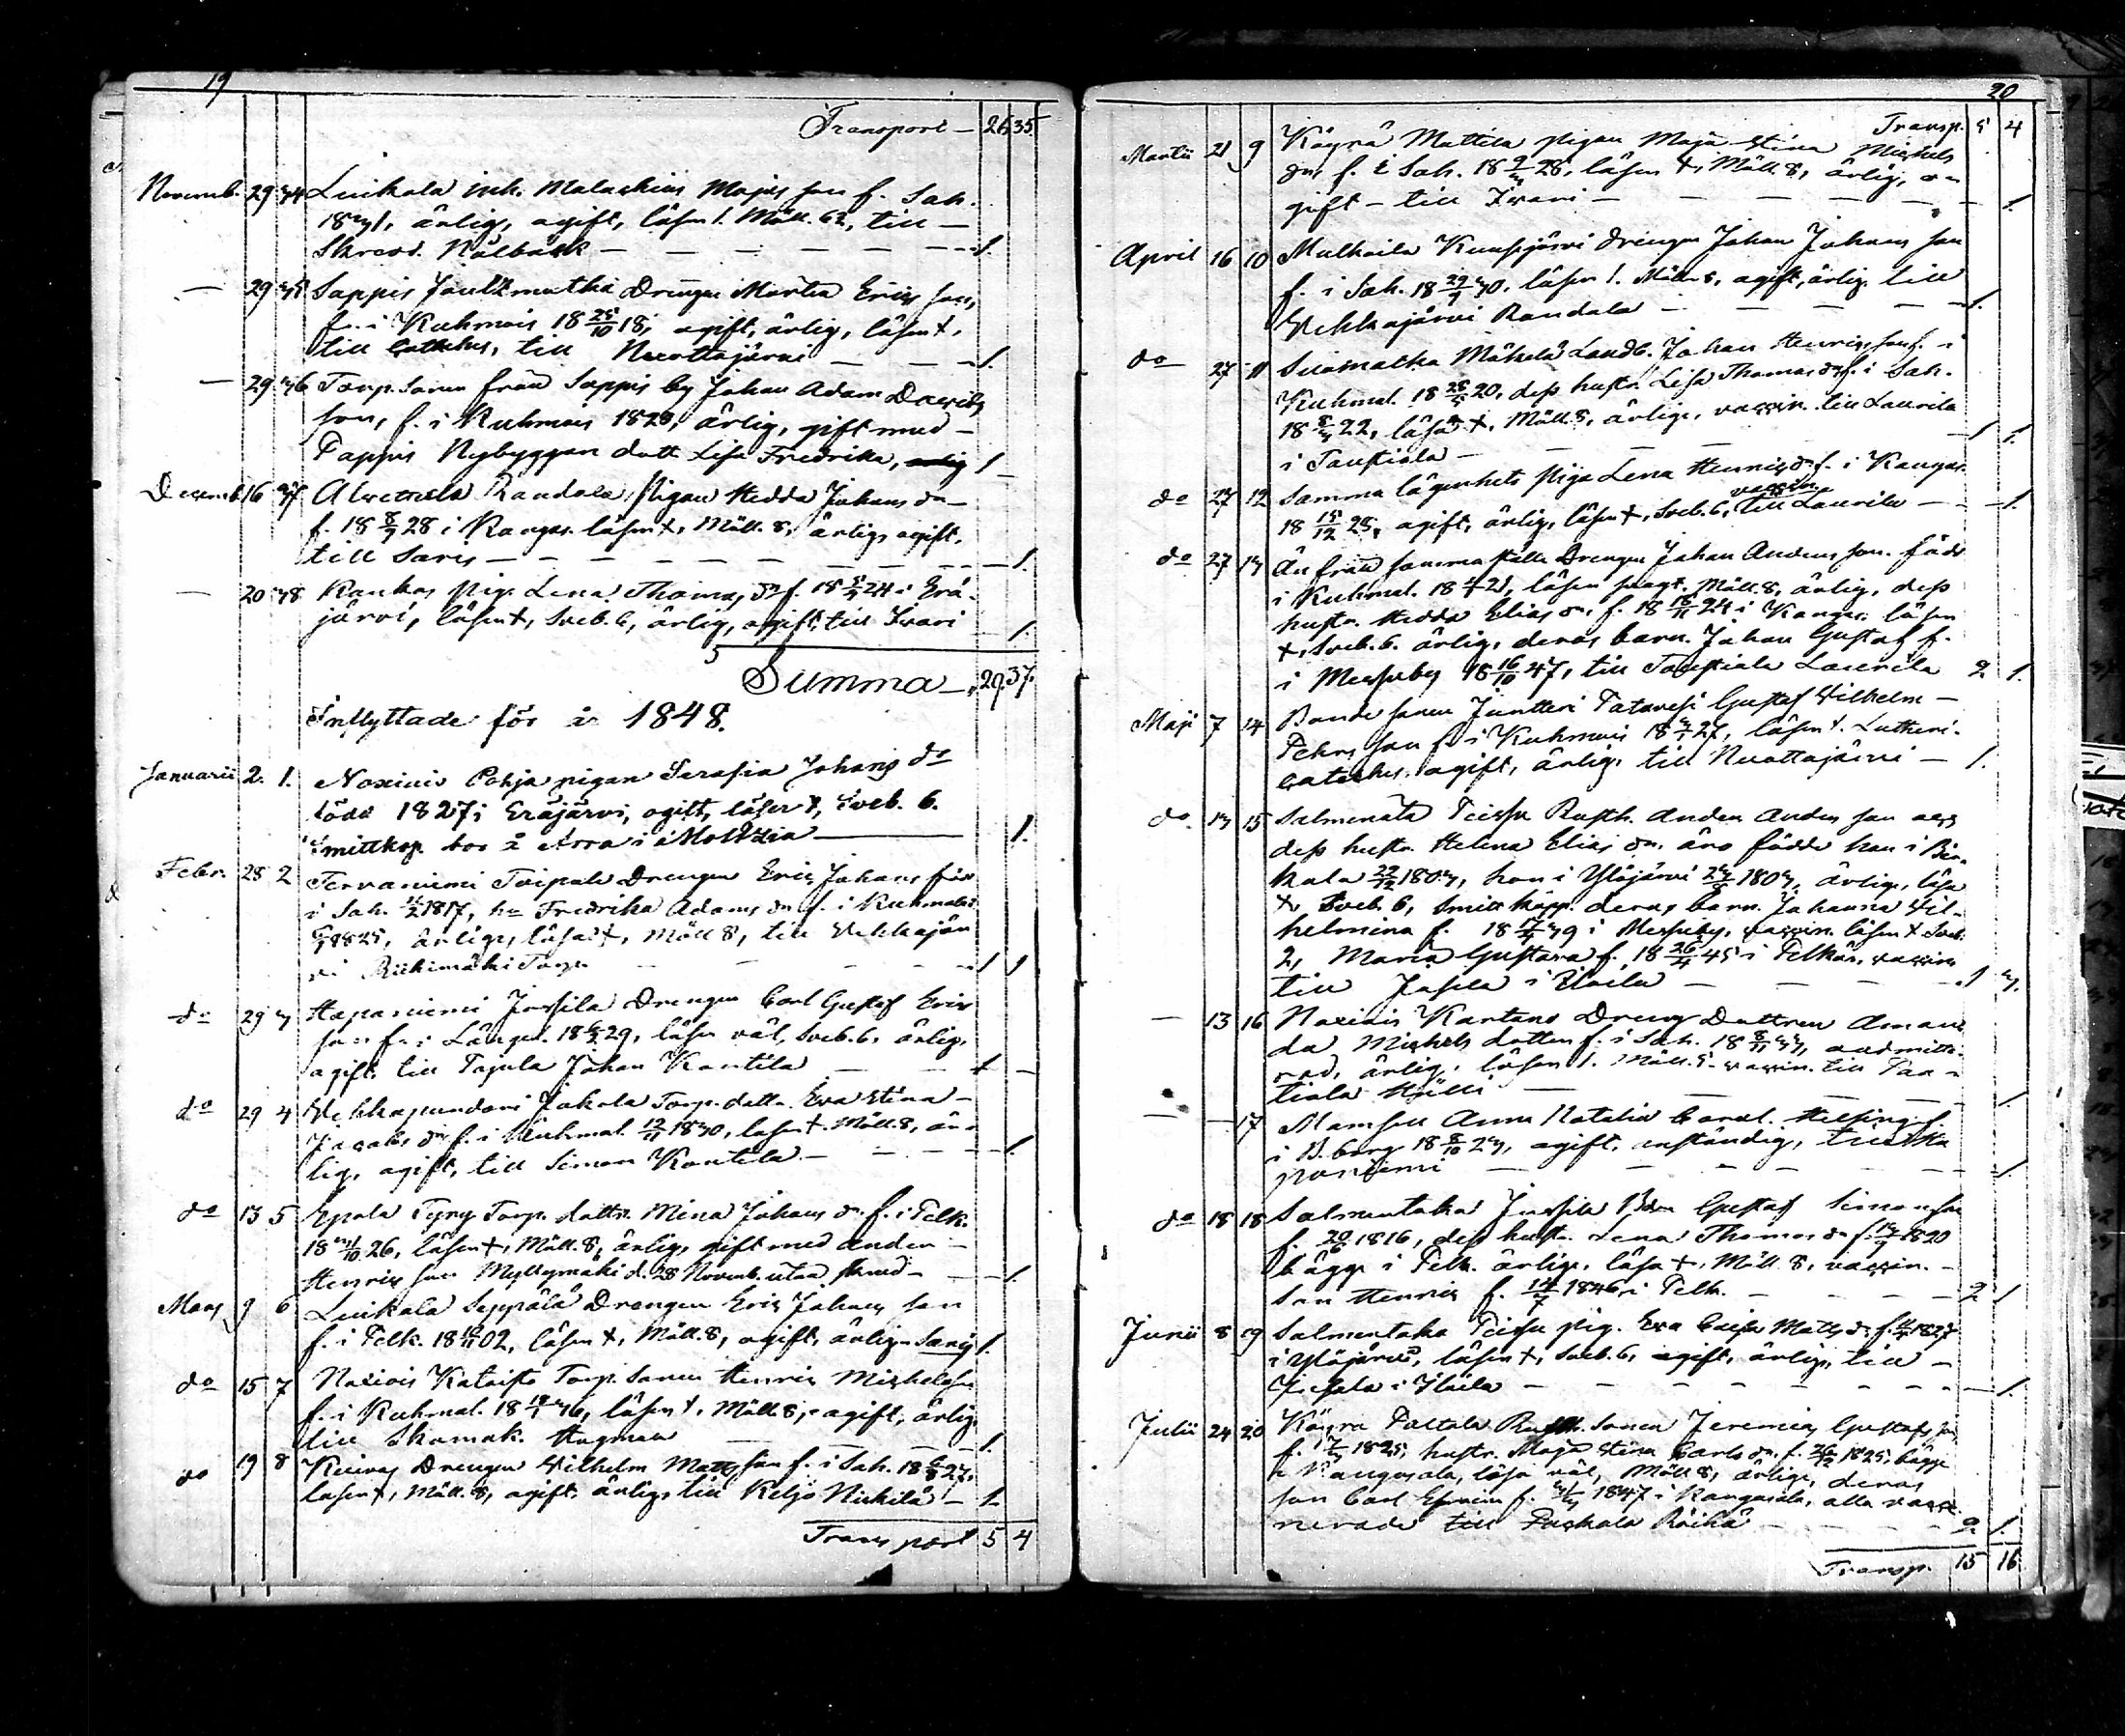 19
Transport — 26 35
Novemb. 29 34 Luikala inh. Malachias Majas son f. Sah.
1831, ärlig, ogift, läser 1. Möll. 62, till —
Skredd. Nålbäck — 1.
— 29 35 Sappis Drengen Mårten Erics son,
f. i Kuhmois 18 25/10 18, ogift, ärlig, läser +,
till Nuottajärvi — 1.
— 29 36 Torp. sonen från Sappis by Johan Adam Davids
son, f. i Kuhmois 1823, ärlig, gift med —
Pappis Nybyggare dott. Lisa Fredrika, 1
Decemb. 16 37 Randala Pigan Hedda Johans dr
f. 18 8/9 28 i Kangas. läser +, Möll. 8, ärlig, ogift,
till Saris — 1.
— 20 38 Kankas pig. Lena Thomas dr f. 18 5/9 24 i Erä-
järvi, läser +, Sveb. 6, ärlig, ogift, till Iwari 1.
Summa — 29. 37.
Inflyttade för år 1848.
Januarii 2. 1. Noxiais Pohja pigan Serafia Johans dr
född 1827 i Eräjärvi, ogift, läser +, Sveb. 6.
Smittkop. hos 1.
Febr. 28 2 Tervaniemi Toipala Drengen Eric Johans son född
i Sah. 11/2 1817, hu Fredrika Adams dr f. i Kuhmalax
1825, ärliga, läsa +, Möll 8, till Vehkajär
vi Riihimäki Torp 1 1
do 29 3 Hapaniemi Jussila Drengen Carl Gustaf Erics
son f. i Längel. 18 29, läser väl, Sveb. 6, ärlig,
ogift, till Pajula Johan Kantila 1 —
do 29 4 Vehkapundari Jakola Torp. dottr. Eva Stina
Jacobs dr f. i Kuhmal. 12/11 1830, läser + Möll. 8, är-
lig, ogift, till Simon Kantila — 1
do 13 5 Epala Tyry Torp. dottr. Mina Johans dr f. i Pelk.
18 31/10 26, läser +, Möll. 8, ärlig, gift med Anders
Henrics son Myllymäki d. 28 Novemb. utan — 1.
Mars 9 6 Luikala Seppälä Drengen Eric Johans son
f. i Pelk. 18 02, läser +, Möll. 8, ogift, ärlig — Saris 1.
do 15 7 Noxiais Kataisto Torp. sonen Henric Michelsson
f. i Kuhmal. 18 36, läser +, Möll. 8, ogift, ärlig
till Skomak. Hagman 1.
do 19 8 Drengen Wilhelm Matts son f. i Sah. 18 6/8 27,
läser +, Möll. 8, ogift, ärlig, till Keljo Nickilä — 1
Transport 5 4
20
Transp. 5 4
Martii 21 9 Käyrä Mattila pigan Maja Stina Michels
dr, f. i Sah. 18 9/3 28, läser +, Möll. 8, ärlig, o-
gift — till Iwari — 1.
April 16 10 Kuusjärvi drengen Johan Johans son
f. i Sah. 18 29/9 30, läser 1. Möll. 8, ogift, ärlig, till
Vehkajärvi Randala — 1.
do 27 11 Suomatka Mäkelä Landb. Johan Henrics son f. i
Kuhmal. 18 28/5 20, dess hustr. Lisa Thomas dr f. i Sah.
18 8/3 22, läsa +, Möll. 8, ärliga, vaccin. till Laurila
i Tautiala — 1 1.
do 27 12 Samma lägenhets piga Lena Henrics dr f. i Kangas.
18 15/12 25, ogift, ärlig, läser +, Sveb. 6, vaccin. till Laurila — 1.
do 27 13 Än från samma ställe Drengen Johan Anders son. född
i Kuhmal. 18 21, läser svagt. Möll. 8, ärlig, dess
hustr. Hedda Elias dr, f. 18 16/11 24 i Kangas. läser
+, Sveb. 6. ärlig, deras barn. Johan Gustaf f.
i Messuby 18 16/10 47, till Tautiala Laurila 2 1.
Maji 7 14 Bonde sonen Juntteri Patavesi Gustaf Wilhelm
Pehrs son f. i Kuhmois 18 27, läser +. Lutheri
cateches. ogift, ärlig, till Nuottajärvi — 1.
do 13 15 Salmentaka Peissu Rusth. Anders Anders son och
dess hustr. Helena Elias dr. äro födde han i Bir-
kala 22/12 1803, hon i Ylöjärvi 1803, ärliga, läsa
+ Sveb. 6, Smittkopp. deras barn Johanna Wil-
helmina f. 18 39 i Messuby, vaccin. läser + Sveb.
2, Maria Gustava f. 18 26/4 45 i Pelkäne, vaccin.
till i Ilaila — 1 3.
— 13 16 Noxiais Kartano Drengs Dottren Aman
da Michels dotter f. i Sah. 18 8/11 33, oadmitte-
rad, ärlig, läser 1. Möll. 5. vaccin. till Tau-
tiala Hulli — 1.
— — 17 Mamsell Anna Natalia Carol. Helsing f.
i B.borg 18 8/10 23, ogift, anständig,
1
do 18 18 Salmentaka Jussila Bon Gustaf Simonsson
f. 20/6 1816, dess hustr. Lena Thomas dr f. 13/9 1820
bägge i Pelk. ärliga, läsa +, Möll. 8, vaccin. —
son Henric f. 14/7 1846 i Pelk. — 2 1
Junii 8 19 Salmentaka Peissu pig. Eva Caisa Matts dr f. 1827
i Ylöjärvi, läser +, Sveb. 6, ogift, ärlig, till —
i Ilaila — 1.
Julii 24 20 Käyrä Pattala Rusth. sonen Jeremias Gustafs son
f. 1825, hustr. Maja Stina Carls dr. f. 26/12 1825, bägge
i Kangasala, läsa väl, Möll 8, ärliga, deras
son Carl Efraim f. 1847 i Kangasala, alla vacci-
nerade till Puskala Räihä — 2 1.
Transp. 15 16